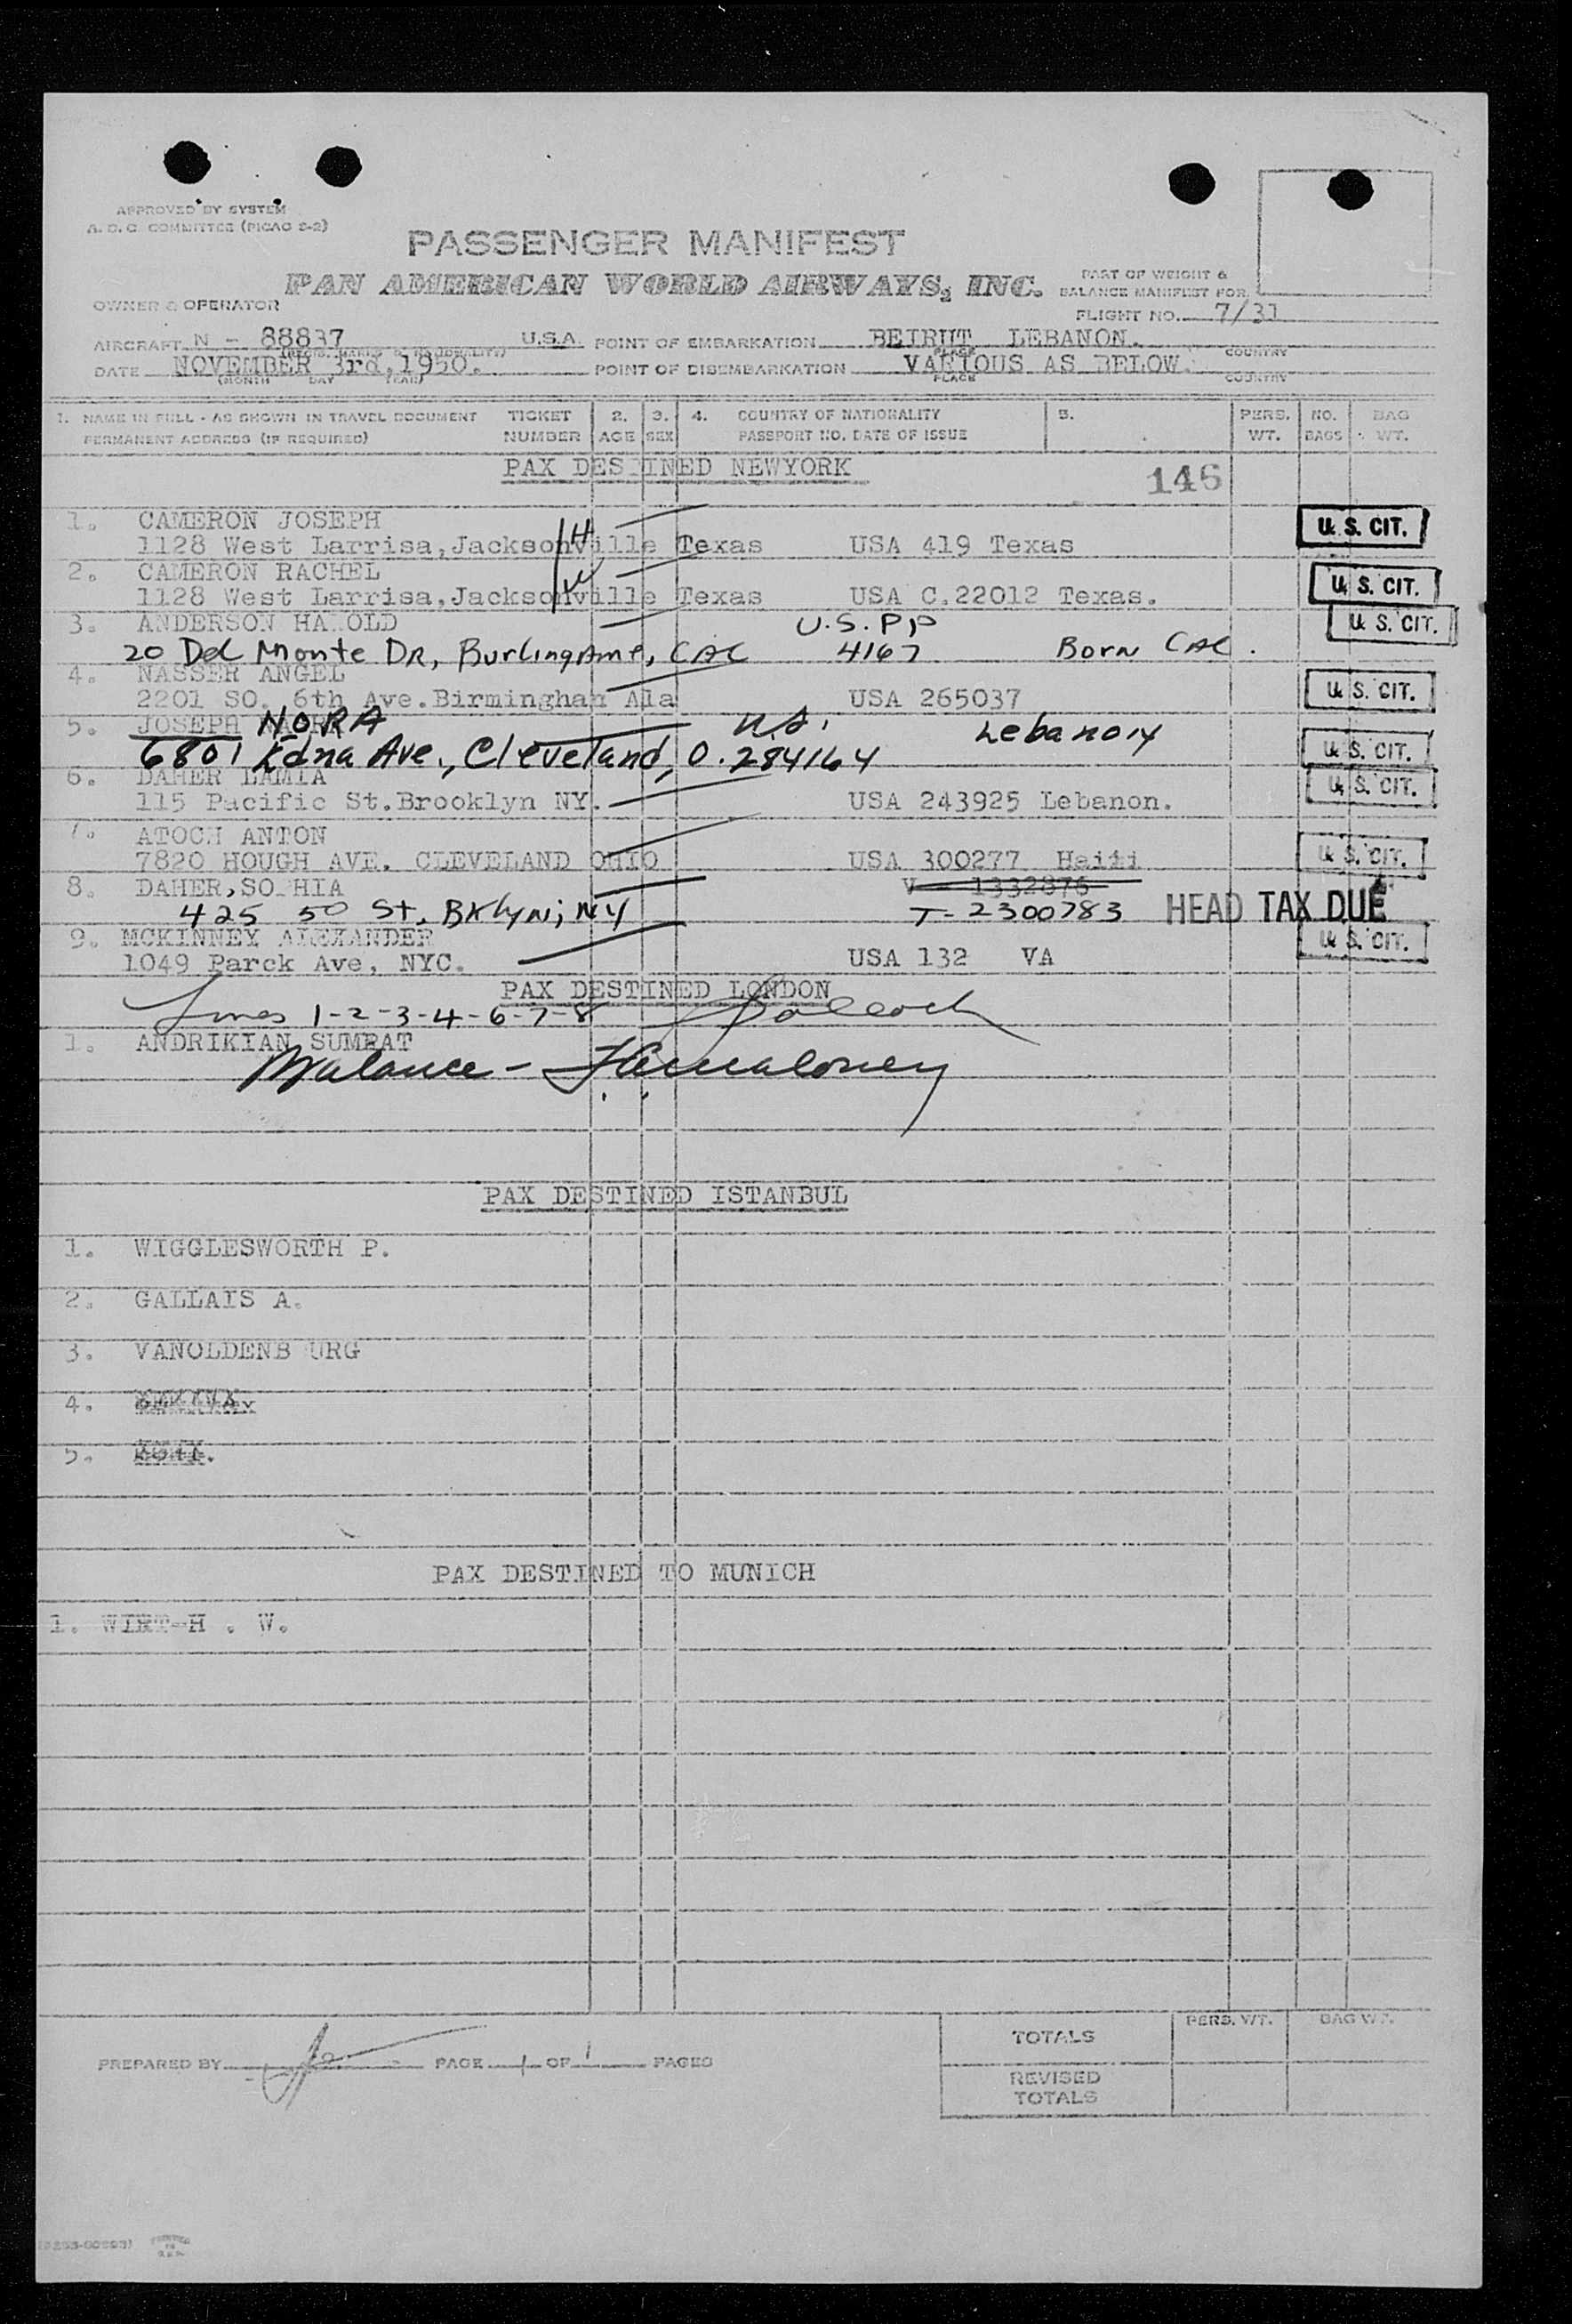 APPROVED BY SYSTEM
A. O. C. COMMITTEE (PICAO S-2)
PASSENGER MANIFEST
PAN AMERICAN WORLD AIRWAYS, INC.
PART OF WEIGHT &
BALANCE MANIFEST FOR
OWNER & OPERATOR
FLIGHT NO. 7/31
AIRCRAFT N - 88837 U.S.A. POINT OF EMBARKATION BEIRUT LEBANON.
(REGIS. MARKS & NATIONALITY) PLACE COUNTRY
DATE NOVEMBER 3rd, 1950. POINT OF DISEMBARKATION VARIOUS AS BELOW.
(MONTH DAY YEAR) PLACE COUNTRY
1. NAME IN FULL - AS SHOWN IN TRAVEL DOCUMENT TICKET 2. 3. 4. COUNTRY OF NATIONALITY 5. PERS. NO. BAG
PERMANENT ADDRESS (IF REQUIRED) NUMBER AGE SEX PASSPORT NO. DATE OF ISSUE WT. BAGS WT.
PAX DESTINED NEWYORK
146
1. CAMERON JOSEPH H
1128 West Larrisa, Jacksonville Texas USA 419 Texas U. S. CIT.
2. CAMERON RACHEL W
1128 West Larrisa, Jacksonville Texas USA C.22012 Texas. U. S. CIT.
3. ANDERSON HAROLD U.S. PP U. S. CIT.
20 Del Monte DR, Burlingame, CAL 4167 Born CAL.
4. NASSER ANGEL
2201 SO. 6th Ave. Birmingham Ala USA 265037 U. S. CIT.
5. JOSEPH NORA U.S. Lebanon
6801 Edna Ave., Cleveland, O. 284164 U. S. CIT.
6. DAHER LAMIA U. S. CIT.
115 Pacific St. Brooklyn NY. USA 243925 Lebanon.
7. ATOCH ANTON
7820 HOUGH AVE. CLEVELAND OHIO USA 300277 Haiti U. S. CIT.
8. DAHER, SOPHIA V - 1332876
425 50 St, Bklyn; NY T-2300783 HEAD TAX DUE
9. MCKINNEY ALEXANDER U. S. CIT.
1049 Parck Ave, NYC. USA 132 VA
PAX DESTINED LONDON
Lines 1-2-3-4-6-7-8
1. ANDRIKIAN SUMPAT
Balance -
PAX DESTINED ISTANBUL
1. WIGGLESWORTH P.
2. GALLAIS A.
3. VANOLDENB URG
4.
5.
PAX DESTINED TO MUNICH
1. WIRT-H . W.
TOTALS PERS. WT. BAG WT.
PREPARED BY PAGE 1 OF 1 PAGES
REVISED
TOTALS
PRINTED
IN
U.S.A.